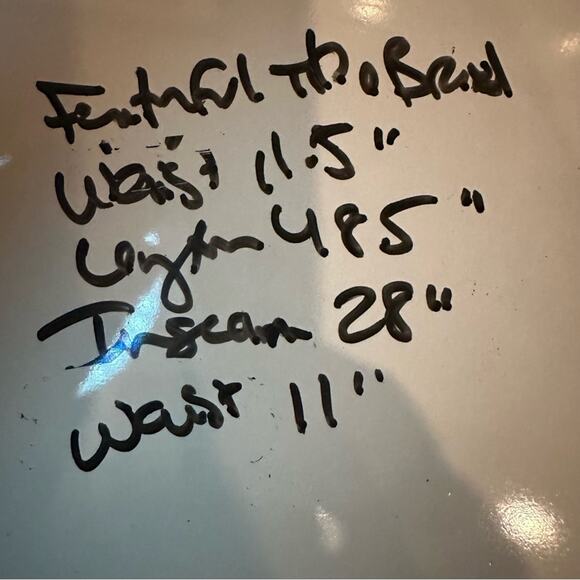 Faithful The Brand
Waist 11.5"
Length 48.5"
Inseam 28"
Waist 11"